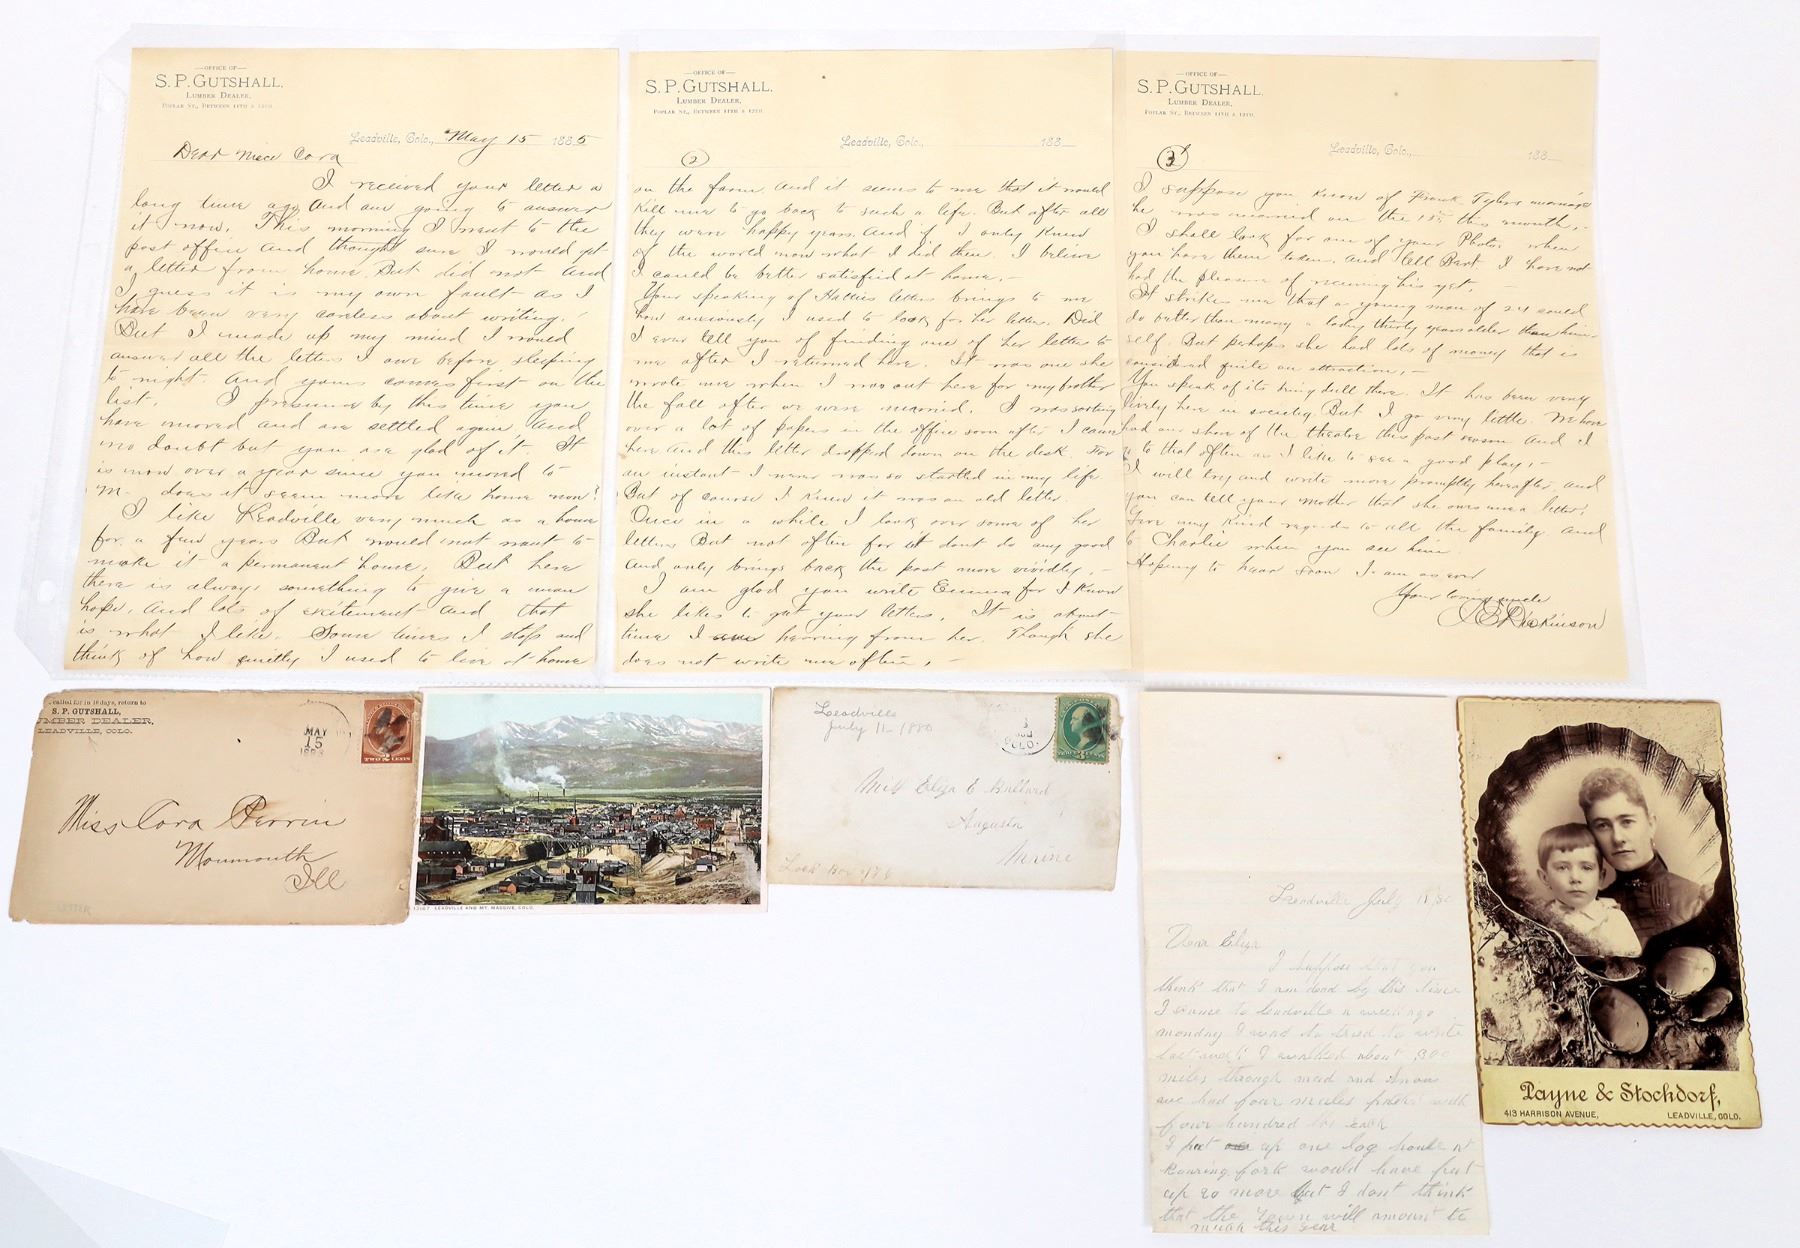 —OFFICE OF—
S. P. GUTSHALL,
LUMBER DEALER,
POPLAR ST., BETWEEN 11TH & 12TH.
Leadville, Colo., May 15 1885
Dear niece Cora
I received your letter a
long time ago and am going to answer
it now. This morning I went to the
post office and thought sure I would get
a letter from home. But did not and
I guess it is my own fault as I
have been very careless about writing.
But I made up my mind I would
answer all the letters I owe before sleeping
to night. And yours comes first on the
list. I presume by this time you
have moved and are settled again, and
no doubt but you are glad of it. It
is now over a year since you moved to
M- does it seem more like home now?
I like Leadville very much as a home
for a few years But would not want to
make it a permanent home. But here
there is always something to give a man
hope, and lots of excitement and that
is what I like. Some times I stop and
think of how quietly I used to live at home
—OFFICE OF—
S. P. GUTSHALL,
LUMBER DEALER,
POPLAR ST., BETWEEN 11TH & 12TH.
Leadville, Colo., 188
2
on the farm. and it seems to me that it would
kill me to go back to such a life. But after all
they were happy years. And if I only knew
of the world now what I did then. I believe
I could be better satisfied at home. -
Your speaking of Hatties letters brings to me
how anxiously I used to look for her letters. Did
I ever tell you of finding one of her letters to
me after I returned here. It was one she
wrote me when I was out here for my brother
the fall after we were married. I was sorting
over a lot of papers in the office soon after I came
here and this letter dropped down on the desk. For
an instant I never was so started in my life
But of course I knew it was an old letter.
Once in a while I look over some of her
letters But not often for it dont do any good
and only brings back the past more vividly. -
I am glad you write Emma for I know
she likes to get your letters. It is about
time I hearing from her. Though she
does not write me often. -
—OFFICE OF—
S. P. GUTSHALL,
LUMBER DEALER,
POPLAR ST., BETWEEN 11TH & 12TH.
Leadville, Colo., 188
3
I suppose you know of Frank Tylers marriage
he was married on the 1st this month. -
I shall look for one of your Photos when
you have them taken. And tell Bert I have not
had the pleasure of receiving his yet. -
It strikes me that a young man of 24 could
do better than marry a lady thirty years older than him
self. But perhaps she had lots of money that is
considered quite an attraction. -
You speak of its being dull there. It has been very
lively here in society. But I go very little. We have
had our share of the theatre this past season and I
go to that often as I like to see a good play. -
I will try and write more promptly hereafter. and
you can tell your mother that she owes me a letter.
Give my kind regards to all the family and
to Charlie when you see him.
Hoping to hear soon I am as ever
Your loving uncle
Dickinson
called for in 10 days, return to
S. P. GUTSHALL,
LUMBER DEALER,
LEADVILLE, COLO.
MAY
15
TWO 2 CENTS
Miss Cora Perrin
Monmouth
Ill
LETTER
13167. LEADVILLE AND MT. MASSIVE, COLO.
Leadville
July 11-1880
COLO.
Miss Eliza E Bullard
Augusta
Maine
Lock Box 476
Leadville July 11 80
Dear Eliza
I suppose that you
think that I am dead by this time
I came to Leadville a week ago
monday I tried to write
last I walked about 300
miles through mud and snow
we had four mules packed with
four hundred lbs each
I put up one log house at
Roaring fork would have put
up 20 more but I dont think
that the town will amount to
much this year
Payne & Stockdorf,
413 HARRISON AVENUE, LEADVILLE, COLO.